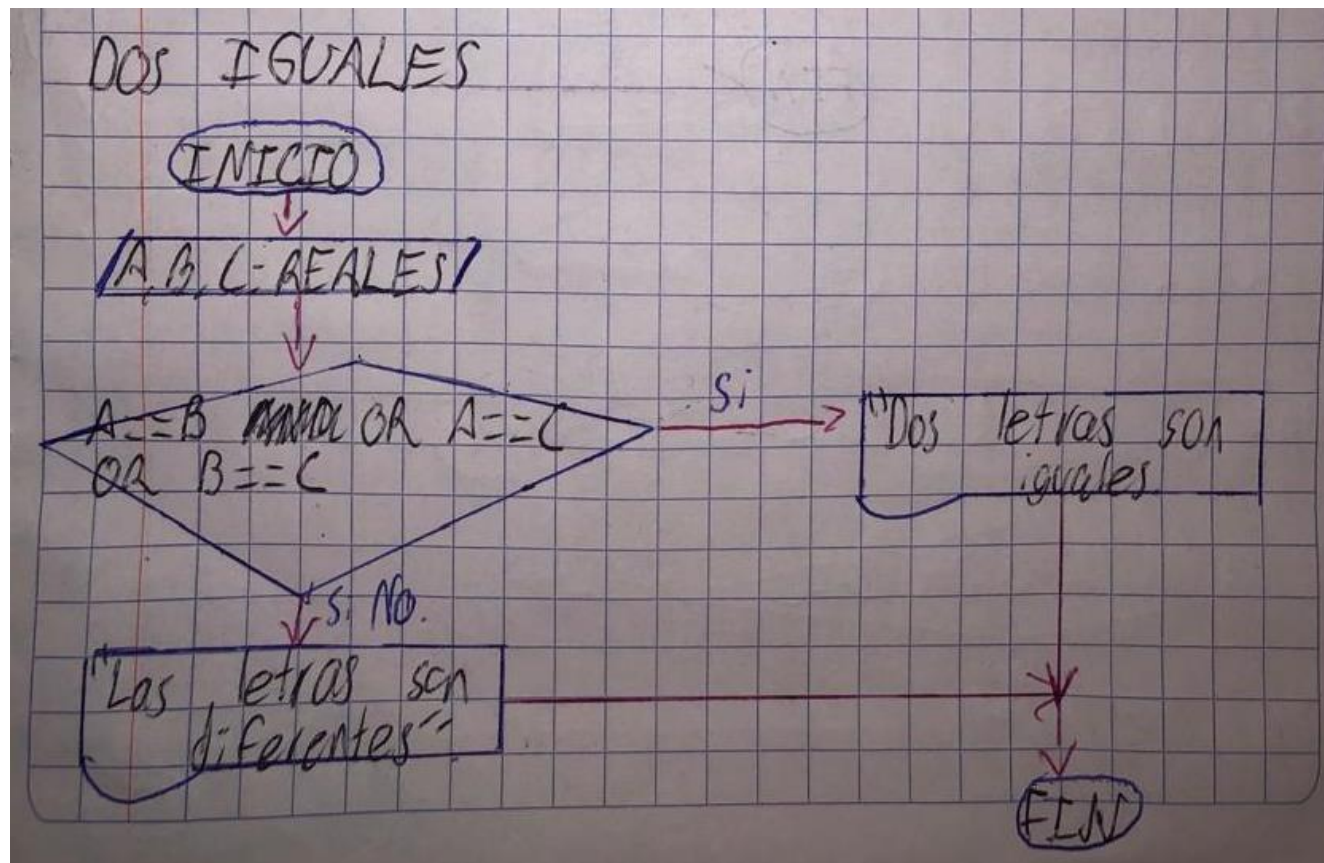 DOS IGUALES
INICIO
A, B, C: REALES
A==B OR A==C
OR B==C
Si
"Dos letras son
iguales
Si No.
"Las letras son
diferentes"
FIN